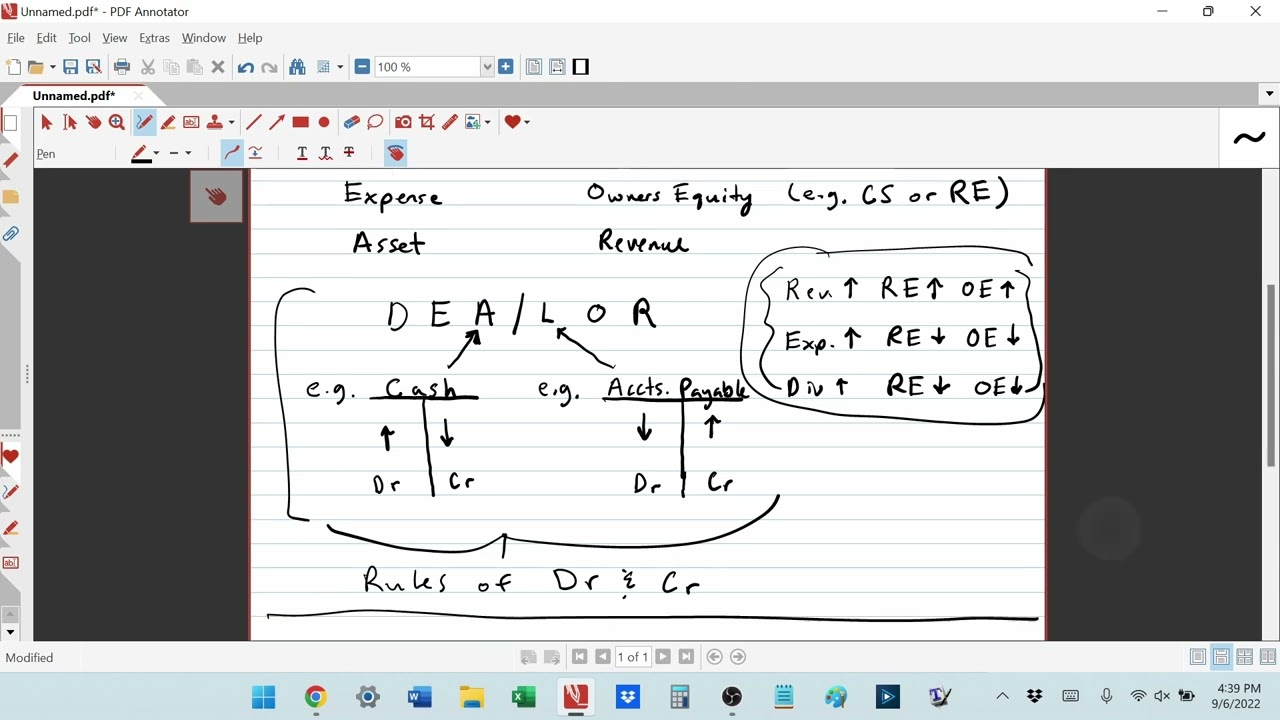 Unnamed.pdf* - PDF Annotator
File Edit Tool View Extras Window Help
100 %
Unnamed.pdf*
Pen
Expense Owners Equity (e.g. CS or RE)
Asset Revenue
Rev ↑ RE ↑ OE ↑
D E A / L O R
Exp. ↑ RE ↓ OE ↓
e.g. Cash e.g. Accts. Payable Div ↑ RE ↓ OE ↓
↑ ↓ ↓ ↑
Dr Cr Dr Cr
Rules of Dr & Cr
Modified 1 of 1
4:39 PM
9/6/2022